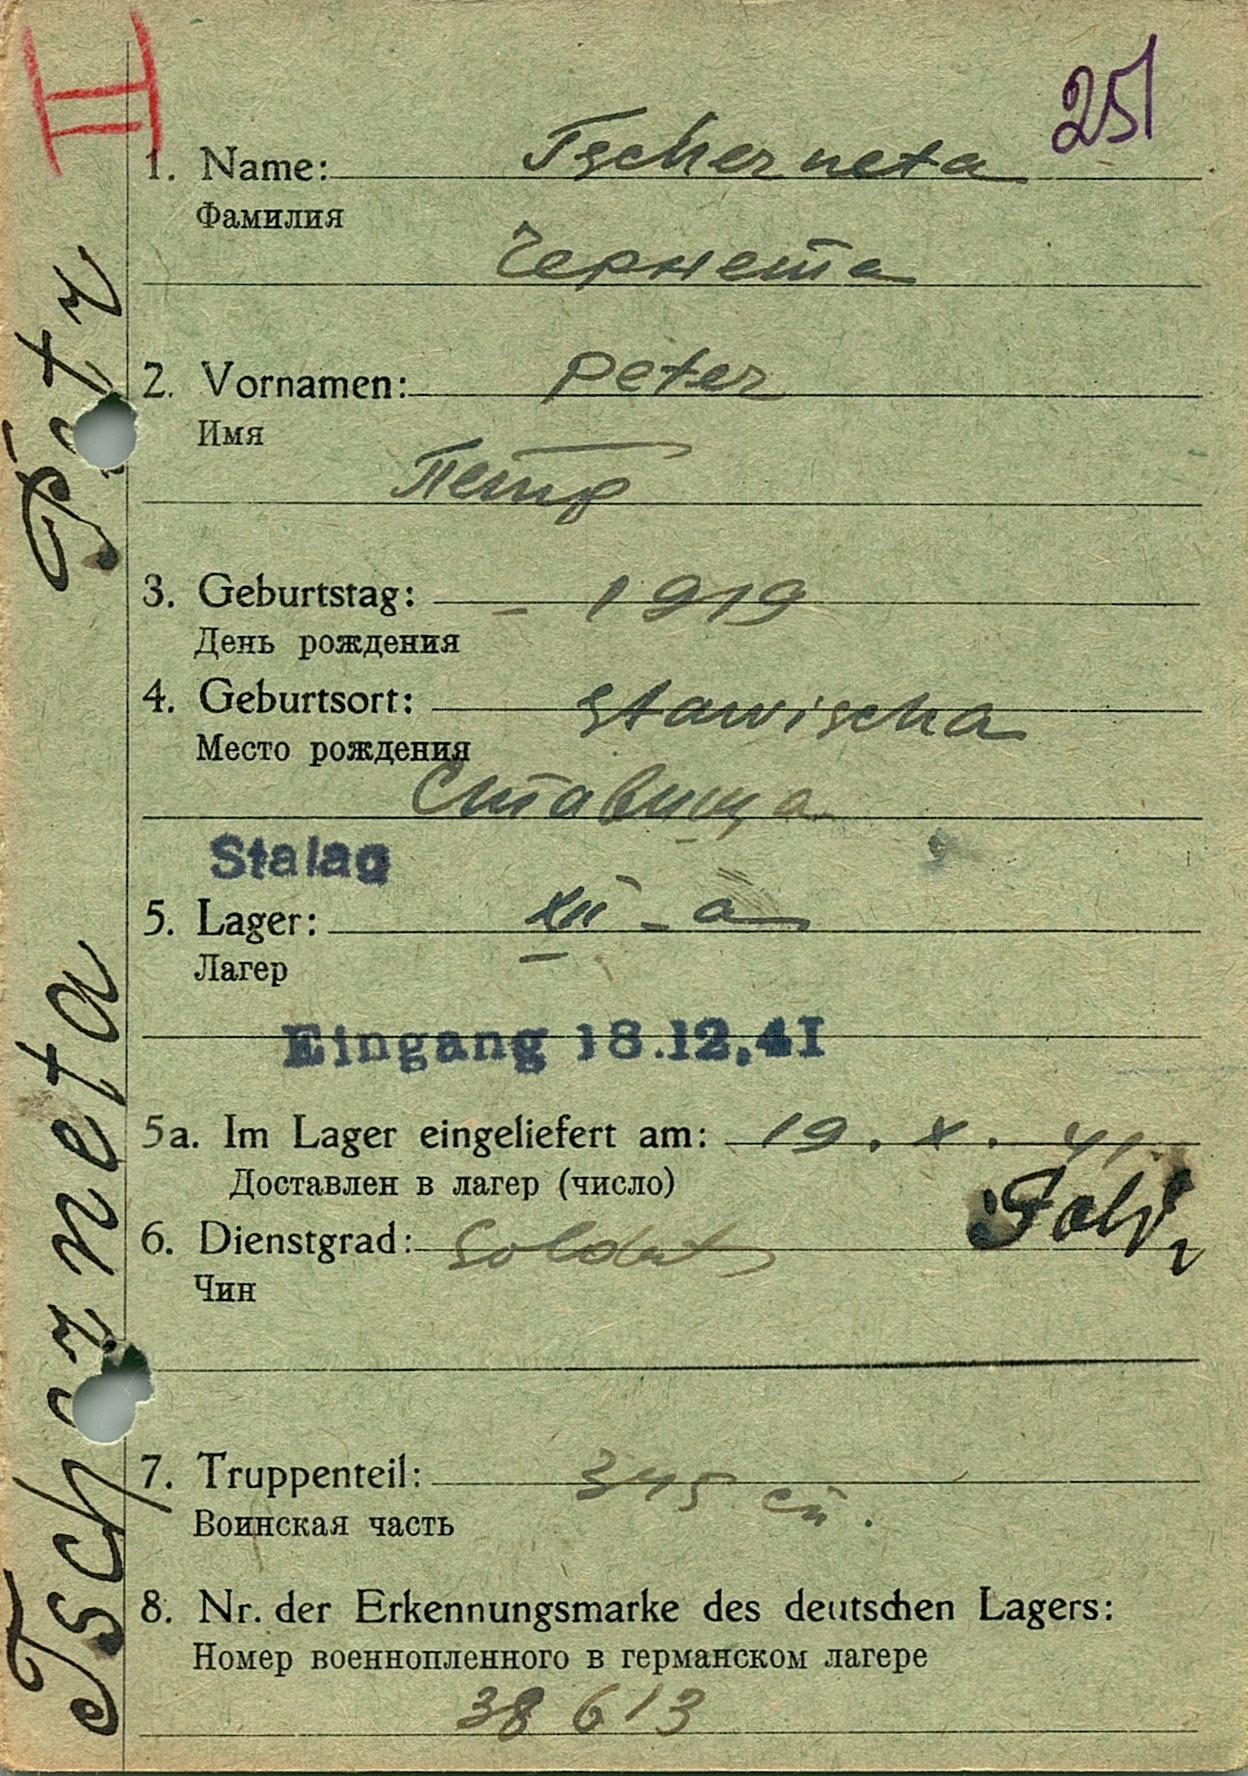 II
251
1. Name: Tscherneta
Фамилия
Чернета
2. Vornamen: Peter
Имя
Петр
3. Geburtstag: - 1919
День рождения
4. Geburtsort: Stawischa
Место рождения
Ставища
Stalag
5. Lager: XII - a
Лагер
Eingang 18.12.41
5a. Im Lager eingeliefert am: 19. X. 41.
Доставлен в лагер (число)
6. Dienstgrad: Soldat
Чин
7. Truppenteil: 345 сп.
Воинская часть
8. Nr. der Erkennungsmarke des deutschen Lagers:
Номер военнопленного в германском лагере
38613
Tscherneta Petr